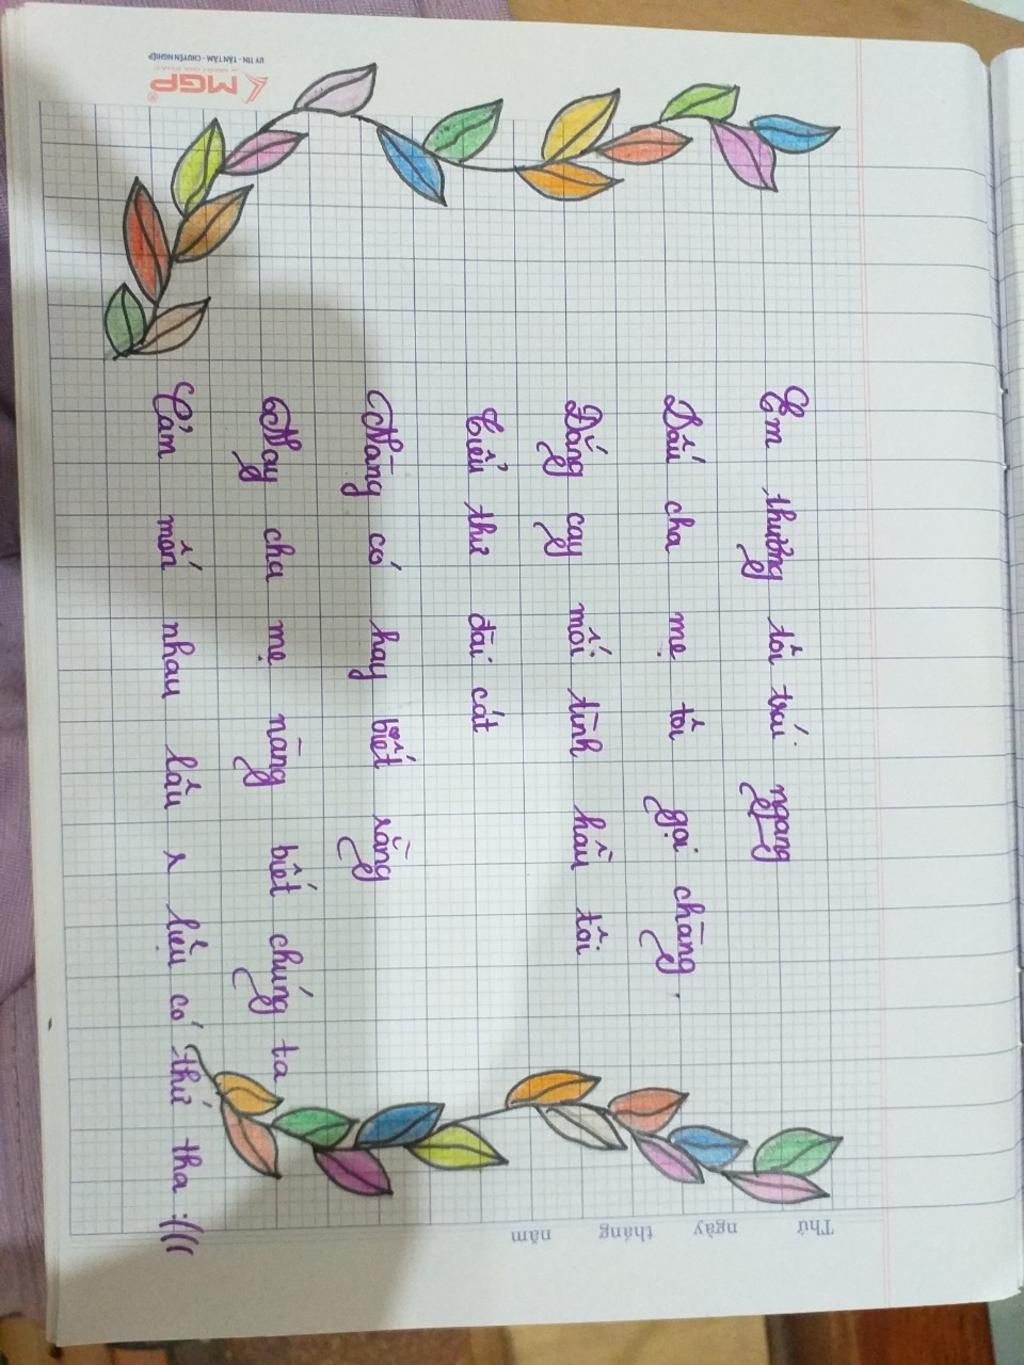 Em thương tôi trái ngang
Dấu cha mẹ tôi gọi chàng.
Đắng cay mối tình hầu tôi
Tiểu thư đài cát
Nàng có hay biết rằng
May cha mẹ nàng biết chúng ta
Cảm mến nhau lâu r liệu có thứ tha :(((
MGP®
UY TÍN - TẬN TÂM - CHUYÊN NGHIỆP
Thứ ngày tháng năm